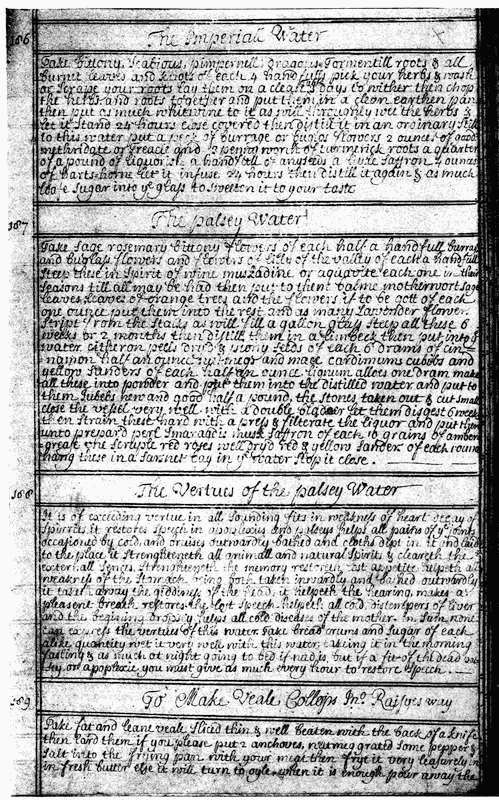 186 The Imperiall Water
Take bittony, Scabious, pimpernell Dragons Tormentill roots & all
burnit leaves and Roots of each 4 handfulls pick your herbs & wash
or Scrape your roots lay them on a cleane 3 days to wither then chop
the herbs and roots together and put them in a clean earthen pan
then put as much whitewine to it as will throughly wet the herbs &
let it Stand 24 hours close covered then distill it in an ordinary Still
to this water put a peck of burrage or buglos flowers 2 ounces of good
methridate or treacle and 3 peny worth of turmerick roots a quarter
of a pound of liquorish a handfull of anyseeds a little Saffron 4 ounces
of harts-horne let it infuse 24 hours then distill it again & as much
loafe Sugar into ye glass to Sweeten it to your taste
187 The palsey Water
Take Sage rosemary bittony flowers of each half a handfull burrage
and buglass flowers and flowers of lilly of the valley of each a handfull
Steep these in Spirit of wine muskadine or aquavite each one in their
Seasons till all may be had then put to them balme motherwort Sage
leaves leaves of orange trees and the flowers if to be gott of each
one ounce put them into the rest and as many Lavender flowers
Stript from the Stalks as will fill a gallon glass Steep all these 6
weeks or 2 months then distill them in a limbeck then put into ye
water cittron peels dryed & piony Seeds of each 6 drams of cin-
namon half an ounce nutmegs and mace cardimums cubebs and
yellow Sanders of each half an ounce lignum alloes one dram make
all these into powder and put them into the distilled water and put to
them Jubebs new and good half a pound, the Stones taken out & cut small
close the vessel very well with a double bladder let them disgest 6 weeks
then Strain these hard with a press & filterate the liquor and put then
unto prepard perl Smaragdis musk Saffron of each 10 grains of amber-
greas one Scruple red roses well dryd red & yellow Sanders of each ounce
hang these in a Sarsnet bag in ye water Stop it close.
188 The Vertues of the palsey Water
It is of exceeding vertue in all Sounding fits in weakness of heart decay of
Spirrits it restores Speech in apoplexies and palseys helps all pains of ye joints
occasioned by cold and bruises outwardly bathed and cloths dipt in it and laid
to the place it Strengtheneth all animall and natural Spirits & cleareth the
externall Sences Strengtheneth the memory restoreth lost appetite helpeth all
weakness of the Stomach being both taken inwardly and bathed outwardly
it taketh away the giddiness of the head, it helpeth the hearing, makes a
pleasent breath restores the lost Speech helpeth all cold distempers of liver
and the begining dropsy helps all cold diseases of the mother. in Sum, none
can express the vertues of this water Take bread crums and Sugar of each
alike quantity wet it very well with this water, taking it in the morning
fasting & as much at night going to bed if need is but if a fit of the dead pal-
sey or apoplexie you must give as much every hour to restore Speech
189 To Make Veale Collops Mrs Raisses way
Take fat and leane veale Sliced thin & well beaten with the back of a knife
then lard them if you please put 2 anchoves, nutmeg grated Some pepper &
Salt into the frying pan with your meat then fry it very leasurely in
in fresh butter else it will turn to oyle when it is enough pour away the